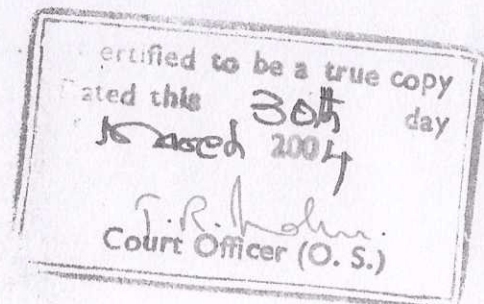 ertified to be a true copy
ated this 30th day
March 2004
T.R.
Court Officer (O. S.)